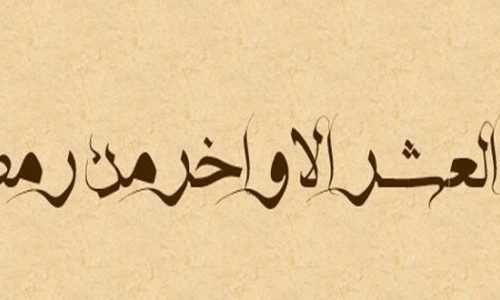 العشر الاواخر من رمض